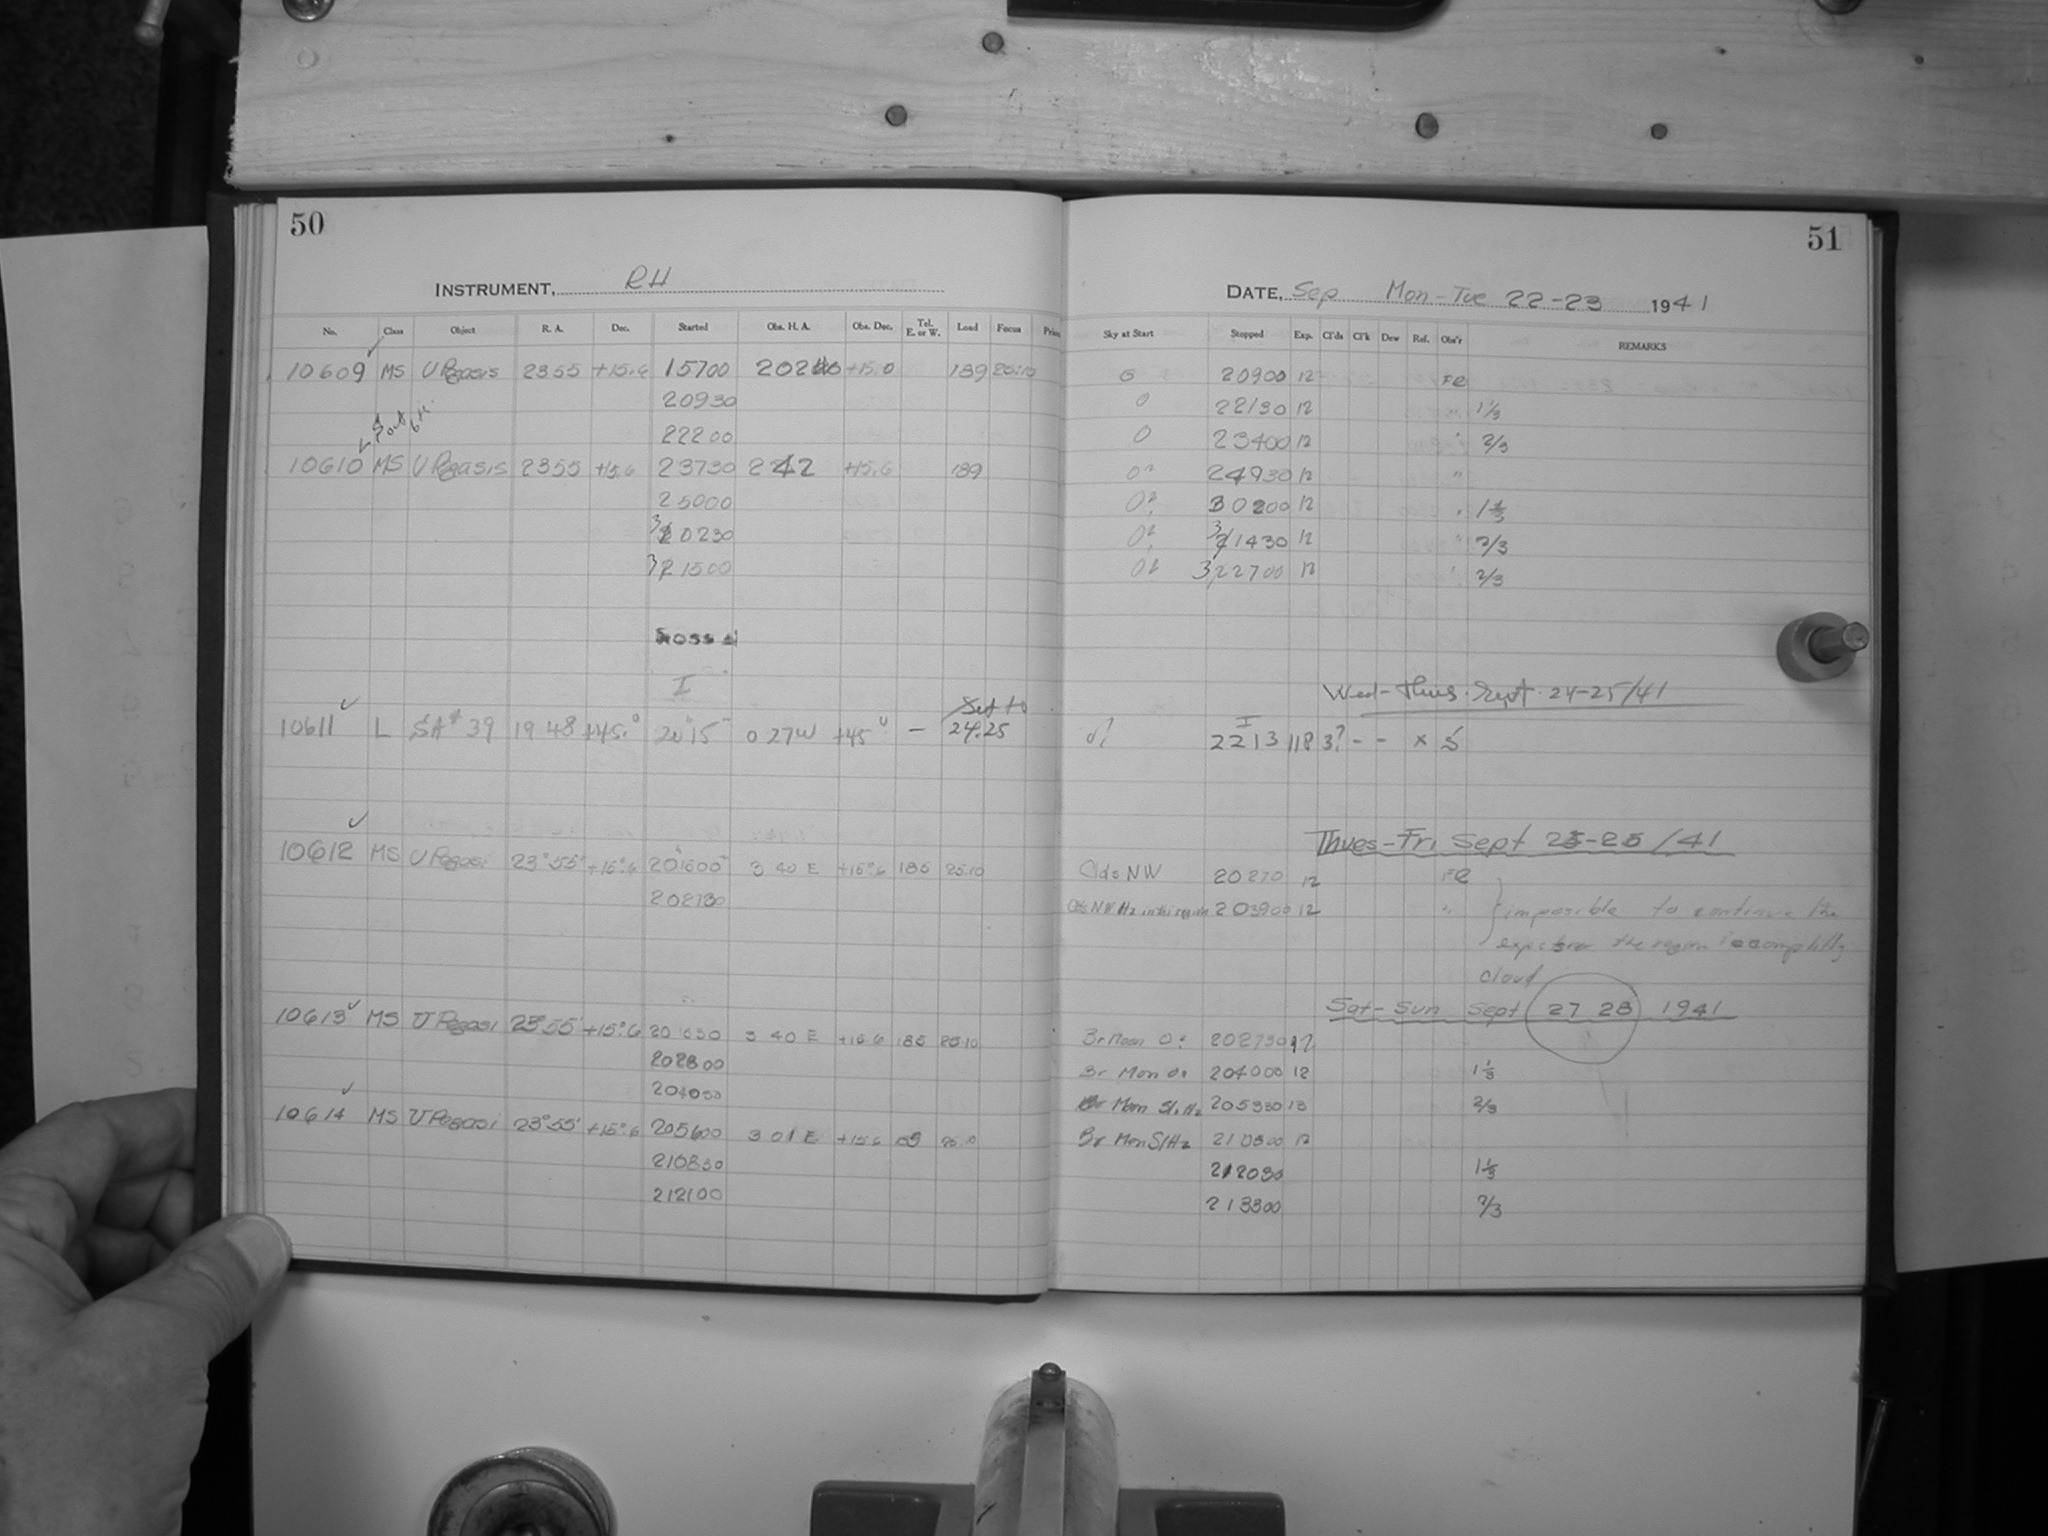 50
INSTRUMENT, RH
No. Class Object R. A. Dec. Started Obs. H. A. Obs. Dec. Tel. E. or W. Load Focus
10609 MS U Pegasis 2355 +15.6 15700 +15.0 189 25.10
20930
22200
10610 MS U Pegasis 2355 +15.6 23730 242 +15.6 189
25000
30230
31500
I
Set to
10611 L SA# 39 19 48 +45.° 20 15 0 27W +45° — 24.25
10612 MS U Pegasi 23°55' +15°.6 201500 3 40 E +15°.6 185 25.10
202730
10613 MS U Pegasi 23°55' +15°.6 3 40 E +15.6 185 25.10
202800
204030
10614 MS U Pegasi 23°55' +15°.6 205600 3 01 E +15.6 25.10
210830
212100
51
DATE, Sep Mon - Tue 22-23 1941
Sky at Start Stopped Exp. Cl'ds Cl'k Dew Ref. Obs'r REMARKS
0 20900 12 FR
0 22130 12 " 1⅓
0 23400 12 " 2/3
0? 24930 12 "
0? 30200 12 " 1⅓
0? 31430 12 " 2/3
0? 32700 12 " 2/3
Wed - Thus. Sept. 24-25/41
I
2213 118 3? - - x S
Thues-Fri Sept 25-26/41
Clds NW 20270 12 FR
Clds NW Hz in this region 203900 12 " imposible to continue the
the region is complitly
cloud
Sat-Sun Sept 27 28 1941
Br Moon 0? 202730 12
Br Mon 0? 204000 12 1⅓
Br Morn Sl. Hz 205330 13 2/3
Br Mon Sl Hz 210800 12
212030 1⅓
213300 2/3